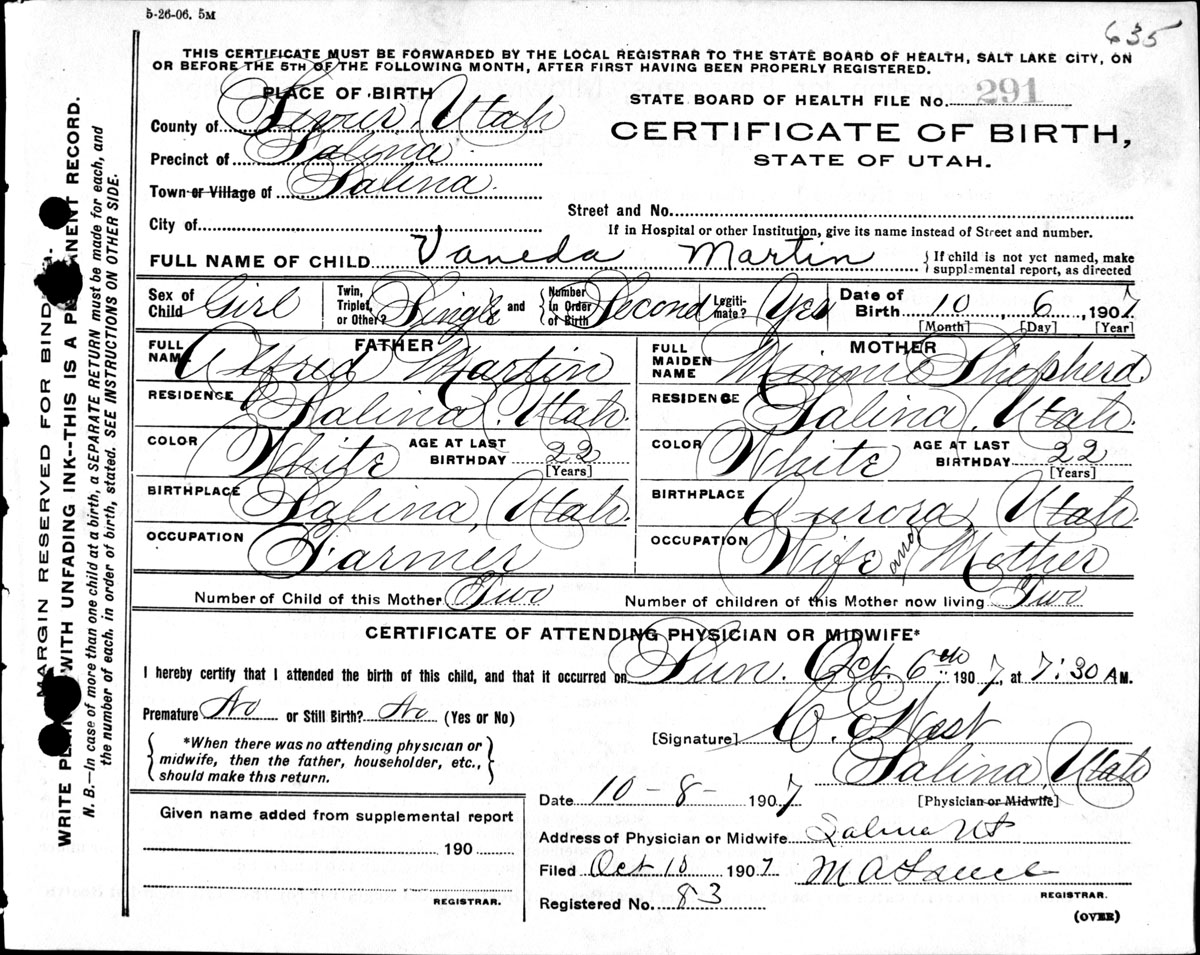 5-26-06. 5M
635
THIS CERTIFICATE MUST BE FORWARDED BY THE LOCAL REGISTRAR TO THE STATE BOARD OF HEALTH, SALT LAKE CITY, ON
OR BEFORE THE 5TH OF THE FOLLOWING MONTH, AFTER FIRST HAVING BEEN PROPERLY REGISTERED.
PLACE OF BIRTH
County of Sevier, Utah
Precinct of Salina
Town or Village of Salina.
City of
STATE BOARD OF HEALTH FILE No. 291
CERTIFICATE OF BIRTH,
STATE OF UTAH.
Street and No.
If in Hospital or other Institution, give its name instead of Street and number.
FULL NAME OF CHILD Vaneda Martin { If child is not yet named, make
supplemental report, as directed
Sex of Child Girl Twin, Triplet, or Other? Single and { Number in Order of Birth Second Legiti-mate? Yes Date of Birth 10, 6, 1907
[Month] [Day] [Year]
FATHER
FULL NAME Alfred Martin
RESIDENCE Salina, Utah.
COLOR White AGE AT LAST BIRTHDAY 22
[Years]
BIRTHPLACE Salina, Utah.
OCCUPATION Farmer
MOTHER
FULL MAIDEN NAME Minnie Shepherd.
RESIDENCE Salina, Utah.
COLOR White AGE AT LAST BIRTHDAY 22
[Years]
BIRTHPLACE Aurora, Utah.
OCCUPATION Wife and Mother
Number of Child of this Mother Two Number of children of this Mother now living Two
CERTIFICATE OF ATTENDING PHYSICIAN OR MIDWIFE*
I hereby certify that I attended the birth of this child, and that it occurred on Sun. Oct. 6th 1907, at 7:30 A M.
Premature No or Still Birth? No (Yes or No)
{ *When there was no attending physician or
midwife, then the father, householder, etc.,
should make this return. }
[Signature] C. E. West
Salina, Utah
[Physician or Midwife]
Date 10-8- 1907
Address of Physician or Midwife Salina Ut
Filed Oct 10 1907 M A
REGISTRAR.
Registered No. 83
(OVER)
Given name added from supplemental report
190
REGISTRAR.
MARGIN RESERVED FOR
WRITE WITH UNFADING INK--THIS IS A RECORD.
N. B.—In case of more than one child at a birth, a SEPARATE RETURN must be made for each, and
the number of each, in order of birth, stated. SEE INSTRUCTIONS ON OTHER SIDE.